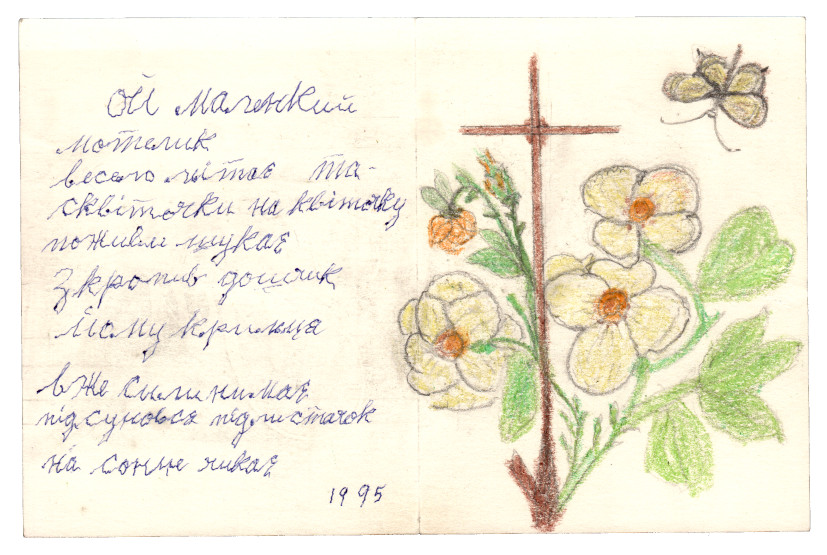 Ой маленкий
мотелик
весело літає та-
сквіточки на квіточку
поживи шукає
Зкропив дощик
йому крильця
вже сили нимає
підсуновся підлисточок
на сонце чикає
1995